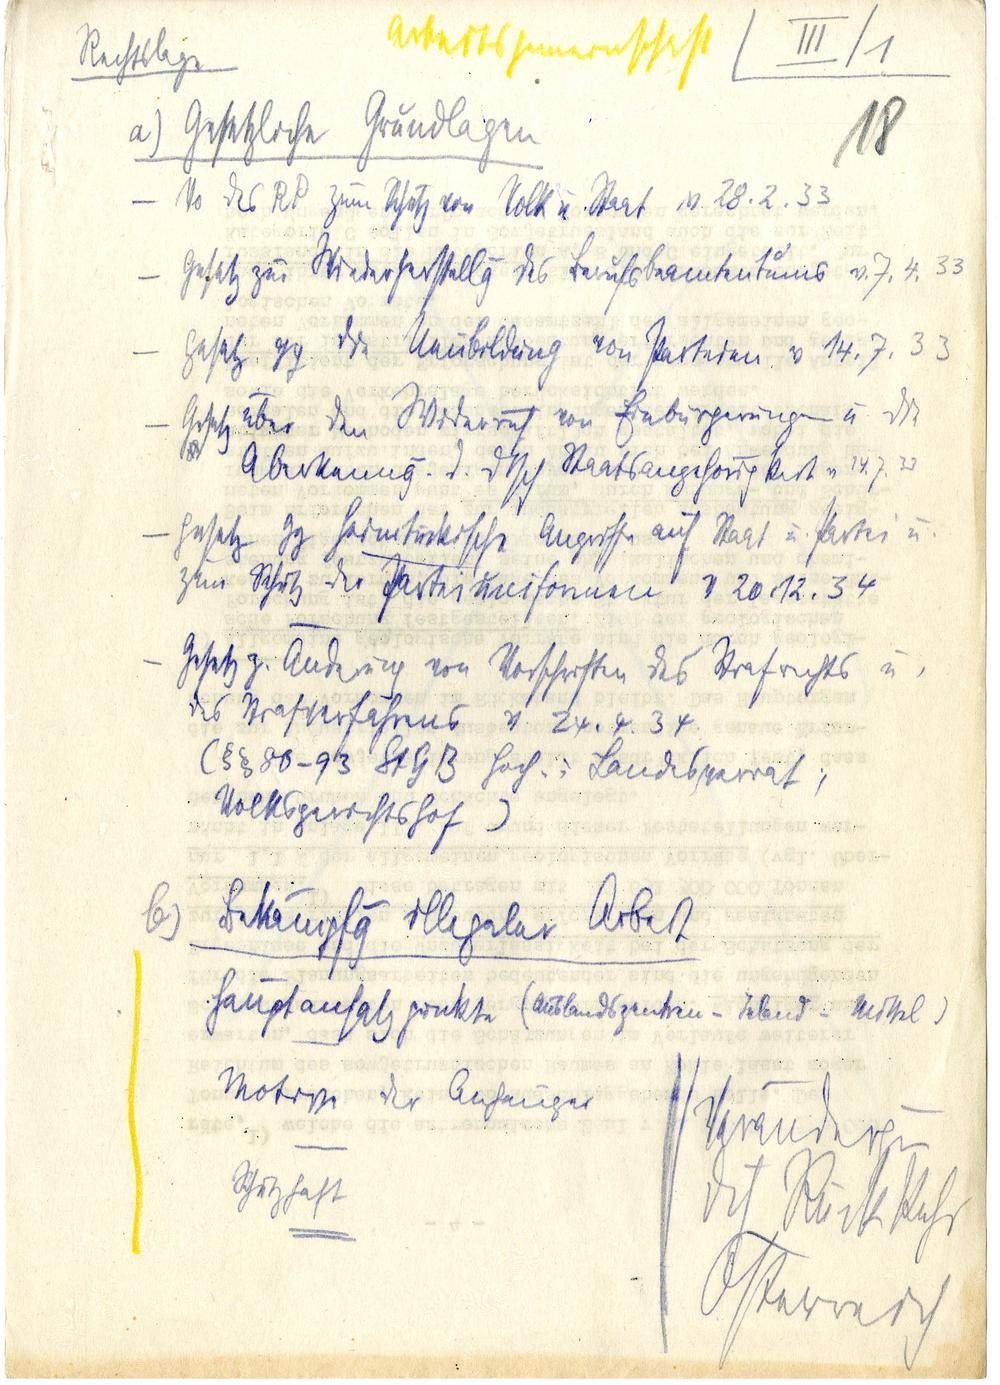 Rechtslage
Arbeitsgemeinschaft
III/1
18
a) Gesetzliche Grundlagen
— Vo des RP zum Schutz von Volk u. Staat v. 28.2.33
— Gesetz zur Wiederherstellg des Berufsbeamtentums v. 7.4.33
— Gesetz gg die Neubildung von Parteien v 14.7.33
— Gesetz über den Widerruf von Einbürgerungen u die
Aberkenng. d. dtsch Staatsangehörigkeit v 14.7.33
— Gesetz gg heimtückische Angriffe auf Staat u. Partei u.
zum Schutz der Parteiuniformen v 20.12.34
— Gesetz z. Änderung von Vorschriften des Strafrechts u.
des Strafverfahrens v 24.4.34
(§§ 80-93 StGB Hoch- : Landesverrat ;
Volksgerichtshof)
b) Bekämpfg illegaler Arbeit
Hauptansatzpunkte (Auslandszentren - Inland - Mittel)
Motive der Anhänger
Schutzhaft
Veränderg
dch Rückkehr
Österreich